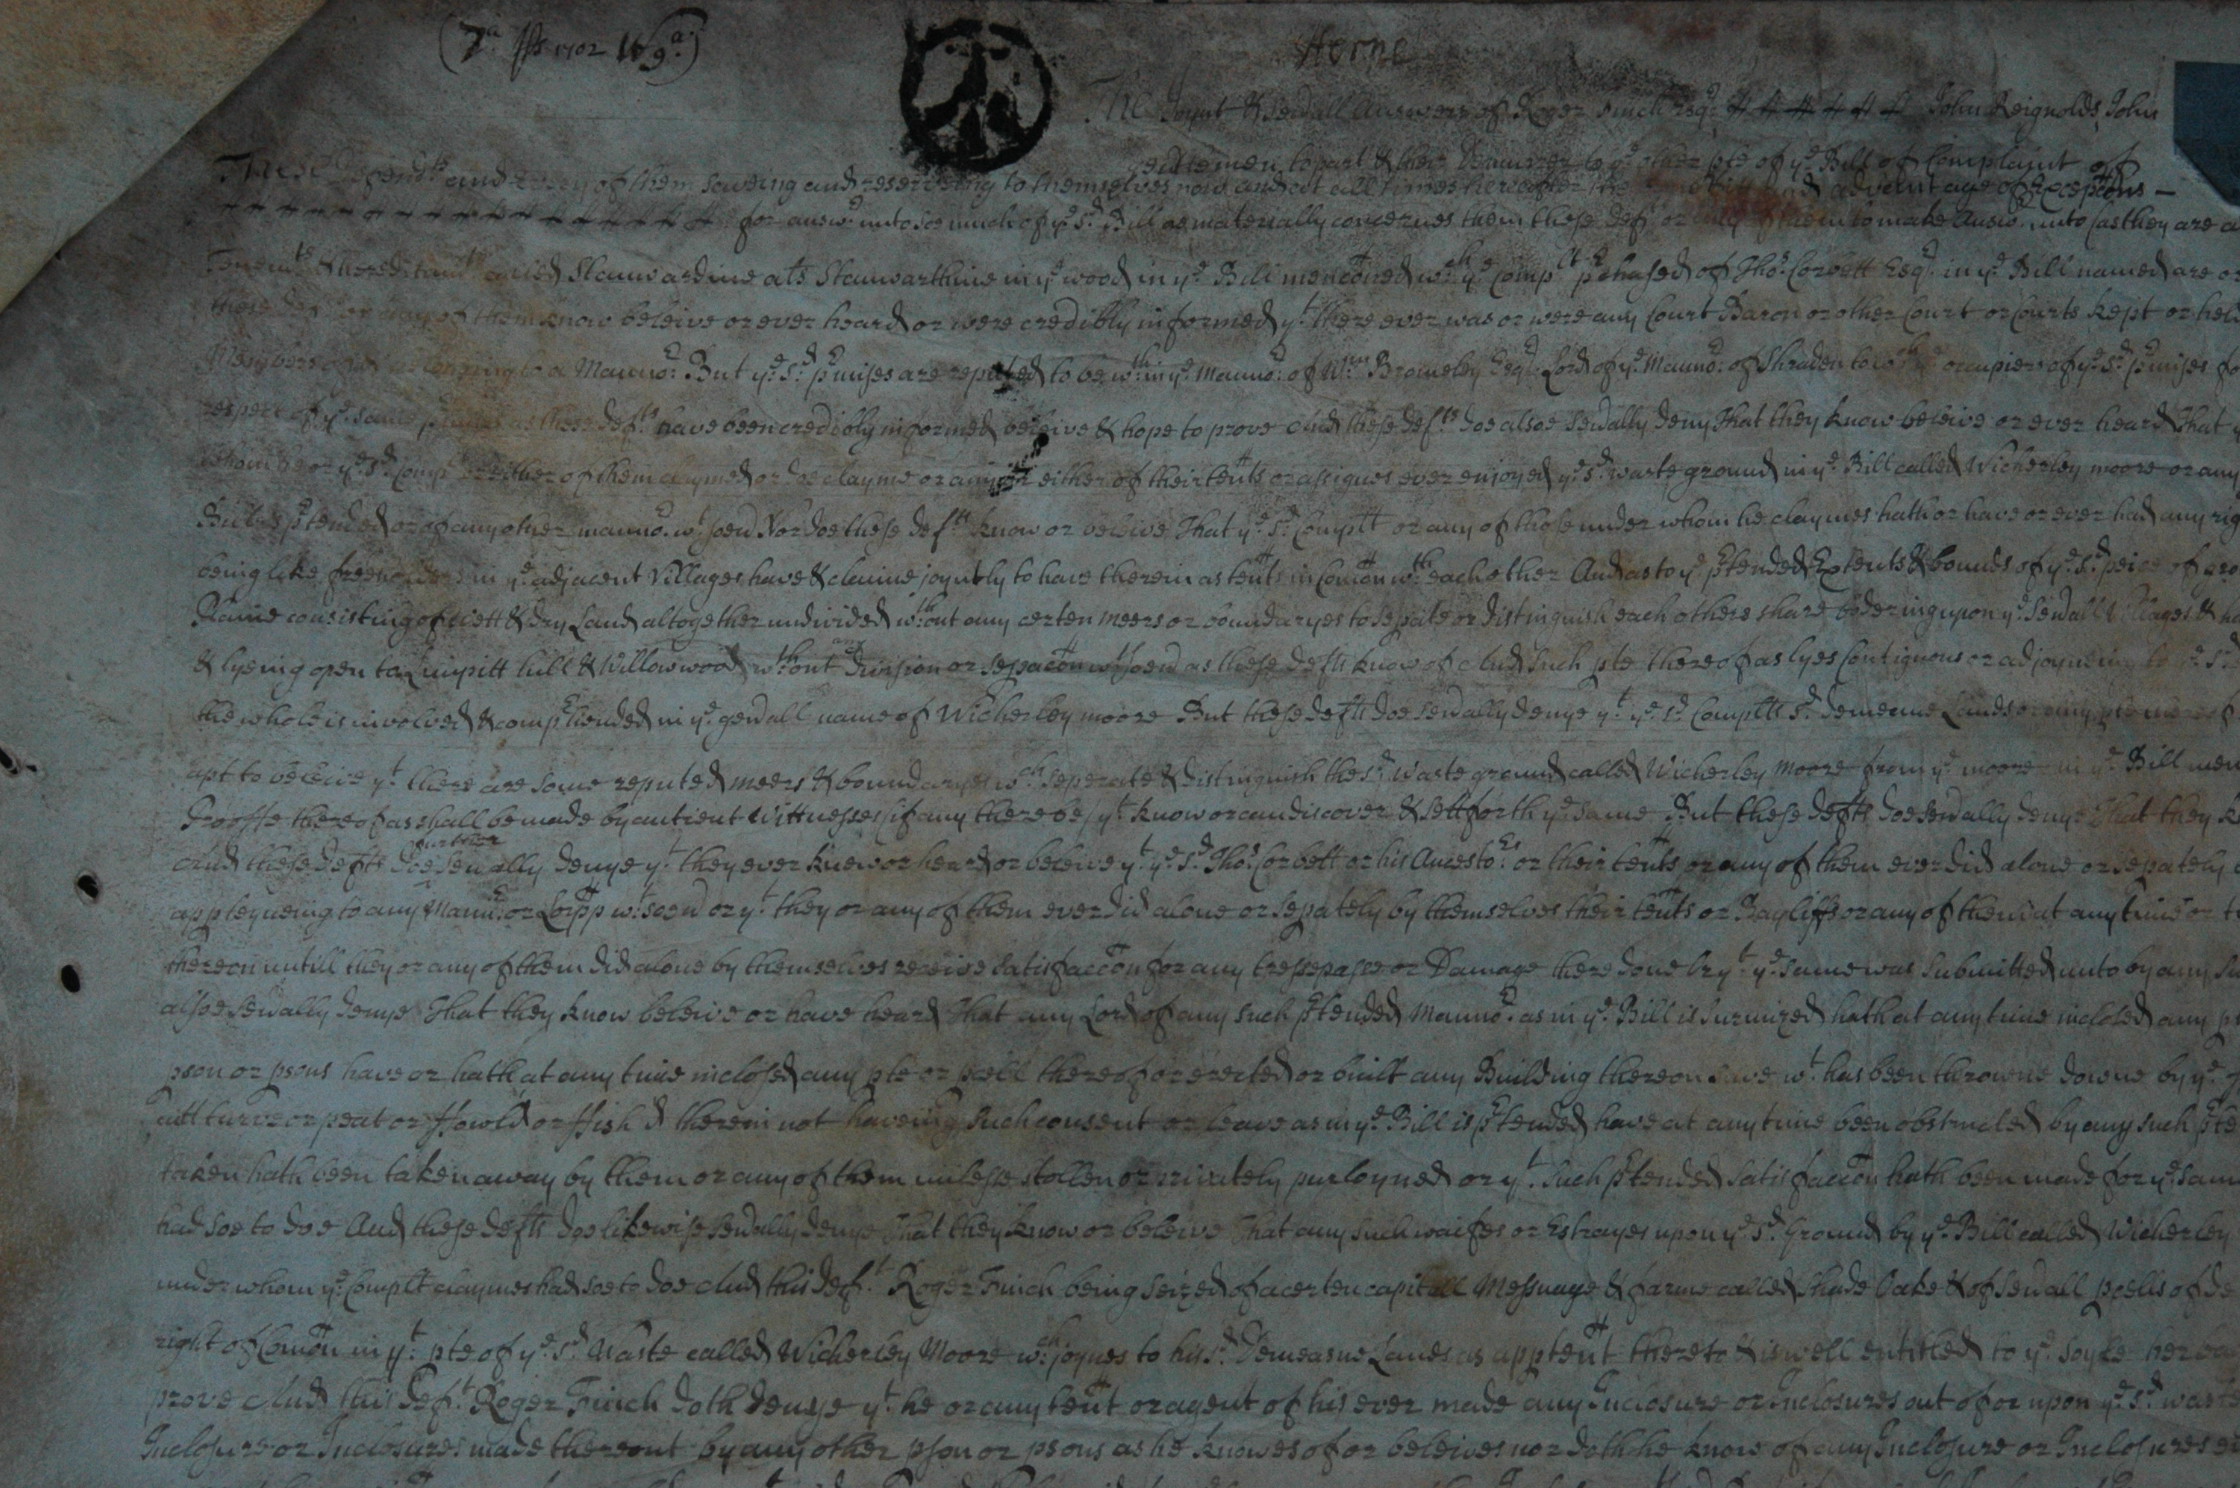 (7a 1702 W 9a)
Horne
The Joynt & sevall Answers of Roger Finch Esqr John Reignolds John
gentlemen to part & their Demurrer to ye other pte of ye Bill of Complaynt of
These Defendts and every of them saveing and reserveing to themselves now and at all times hereafter all advantage of Excepcons
for answr unto soe much of ye sd Bill as materially concernes them these defts or any of them to make Answr unto (as they are
Tenemts & hereditamts called Stanwardine als Stanwarthine in ye wood in ye Bill menconed wch ye Complt pchased of Thos Corbett Esqr in ye Bill named are or
these defts or any of them know beleive or ever heard or were credibly informed yt there ever was or were any Court Baron or other Court or Courts kept or held
Members belonging to a Manno: But ye sd pmises are reputed to be wthin ye Manno: of Wm Bromeley Esqr Lord of ye Manno: of Shraden to wch ye occupiers of ye sd pmises
respect of ye same pmises as these defts have been credibly informed beleive & hope to prove And these defts doe alsoe sevally deny That they know beleive or ever heard That
whom he or ye sd Complt or either of them claymed or doe clayme or any or either of their tents or assignes ever enjoyed ye sd waste ground in ye Bill called Wicherley moore or any
Bill is ptended or of any other manno: wtsoevr Nor doe these defts know or beleive That ye sd Complt or any of those under whom he claymes hath or have or ever had any rig
being like freeholders in ye adjacent Villages have & claime joyntly to have therein as tents in Comon wth each other And as to ye ptended Extents & bounds of ye sd peice of gro
Name consisting of wett & dry Land altogether undivided wthout any certen meers or boundaryes to sepate or distinguish each others share bordering upon ye sevall Villages &
& lyeing open to Limpitt hill & Willow wood wthout any Division or sepacon wtsoevr as these defts know of And such pte thereof as lyes Contiguous or adjoyneing to ye sd
the whole is involved & comphended in ye genall name of Wicherley moore But these defts doe sevally denye yt ye sd Complts sd demesne Lands or any pte thereof
apt to beleive yt there are some reputed meers & boundaryes wch seperate & distinguish the sd waste ground called Wicherley Moore from ye moore in ye Bill men
Prooffe thereof as shall be made by antient Wittnesses (if any there be) yt know or can discover & sett forth ye same But these defts doe sevally denye That they k
And these defts doe further sevally denye yt they ever knew or heard or beleive yt ye sd Thos Corbett or his Ancestors or their tents or any of them ever did alone or sepately
appteyneing to any Manno: or Lorpp wtsoevr or yt they or any of them ever did alone or sepately by themselves their tents or Bayliffs or any of them at any time or
thereon untill they or any of them did alone by themselves receive satisfaccon for any tresspasse or Damage there done or yt ye same was submitted unto by any
alsoe sevally denye That they know beleive or have heard That any Lord of any such ptended Manno: as in ye Bill is surmized hath at any time inclosed any
pson or psons have or hath at any time inclosed any pte or pcell thereof or erected or built any Building thereon save wt has been throwne downe by ye
cutt turve or peat or ffowld or ffish'd therein not haveing such consent or leave as in ye Bill is ptended have at any time been obstructed by any such pte
taken hath been taken away by them or any of them unlesse stollen or privately purloyned or yt such ptended satisfaccon hath been made for ye same
had soe to doe And these defts doe likewise sevally denye That they know or beleive That any such waifes or Estrayes upon ye sd Ground by ye Bill called Wicherley
under whom ye Complt claymes had soe to doe And this deft Roger Finch being seized of a certen capitall Messuage & farme called Shade Oake & of sevall pcells of de
right of Comon in yt pte of ye sd Waste called Wicherley Moore wch joynes to his sd Demeasne Lands as apptent thereto & is well entitled to ye soyle
prove And this deft Roger Finch doth denye yt he or any tent or agent of his ever made any Inclosure or Inclosures out of or upon ye sd wast
Inclosure or Inclosures made thereout by any other pson or psons as he knowes of or beleives nor doth he know of any Inclosure or Inclosures